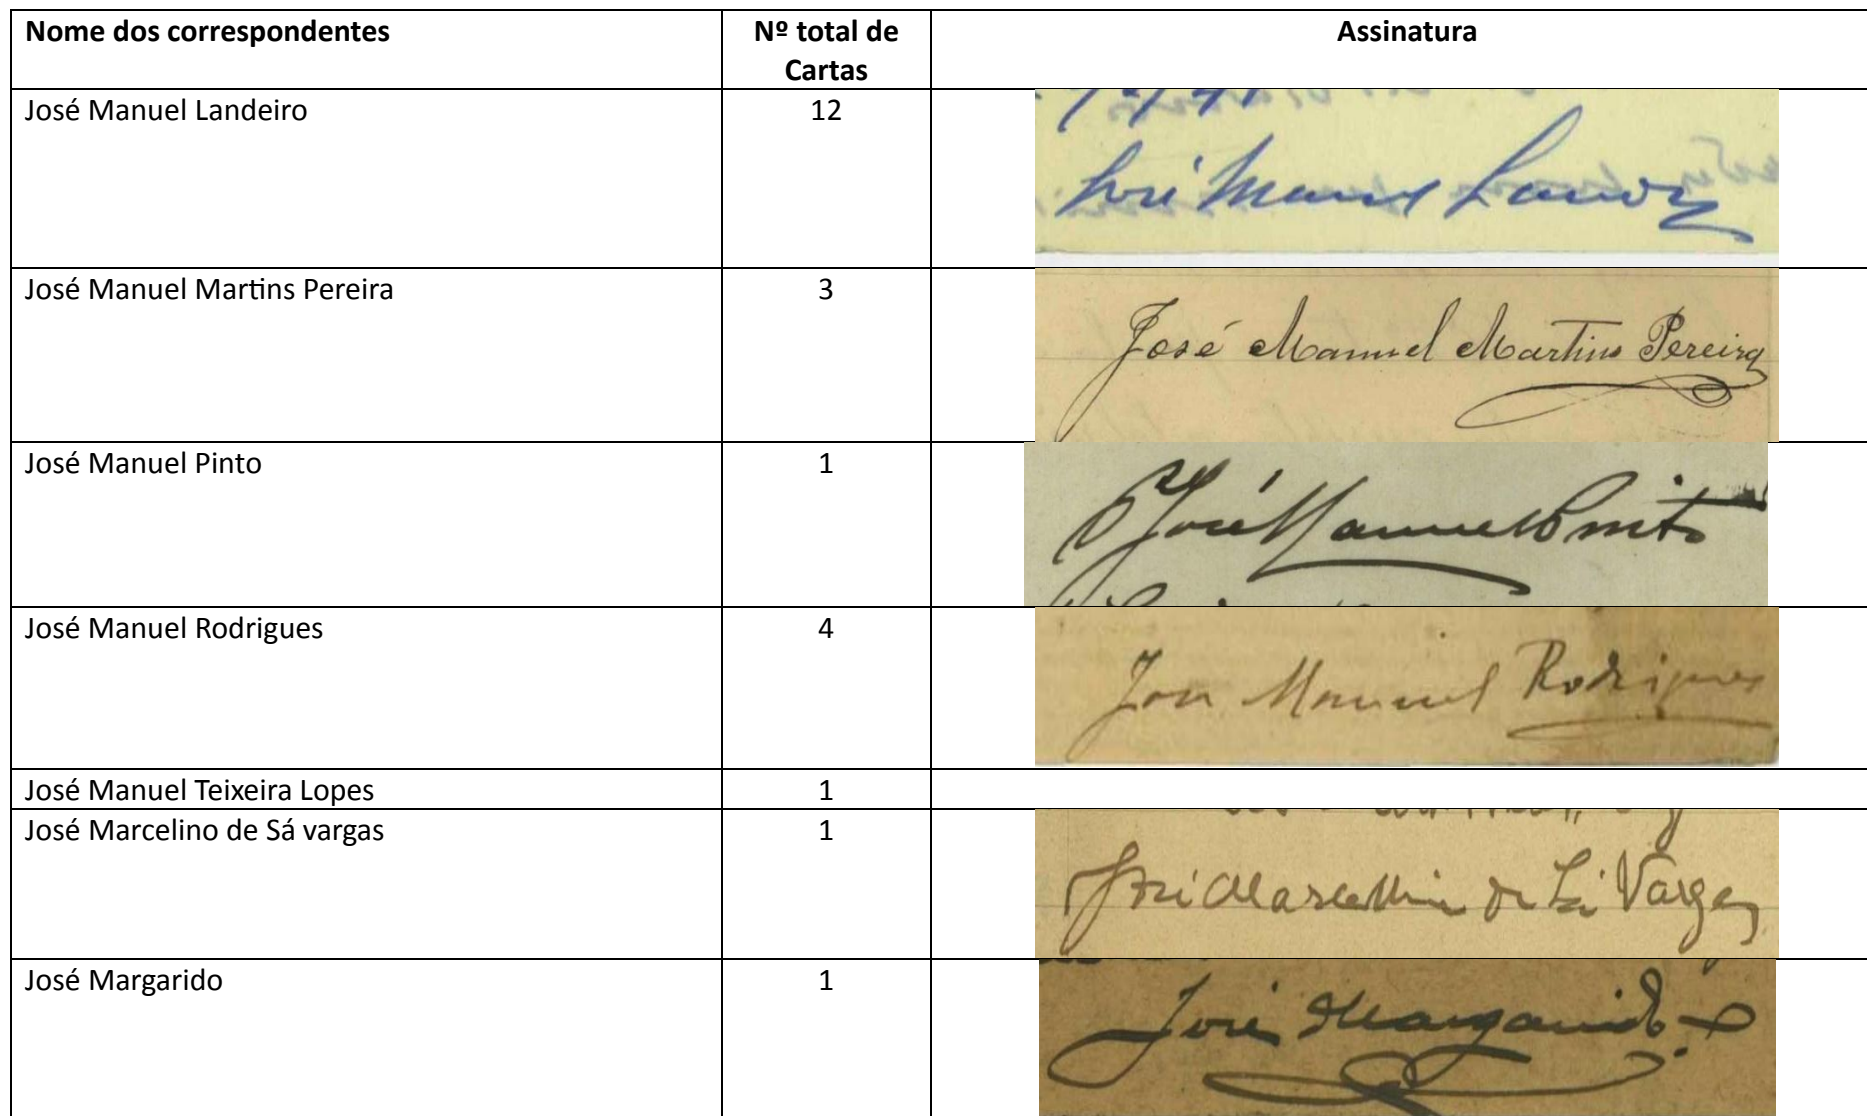 Nome dos correspondentes Nº total de Cartas Assinatura
José Manuel Landeiro 12
José Manuel
José Manuel Martins Pereira 3
José Manuel Martins Pereira
José Manuel Pinto 1
José Manuel Pinto
José Manuel Rodrigues 4
José Manuel Rodrigues
José Manuel Teixeira Lopes 1
José Marcelino de Sá vargas 1
José Marcellino de Sá Vargas
José Margarido 1
José Margarido